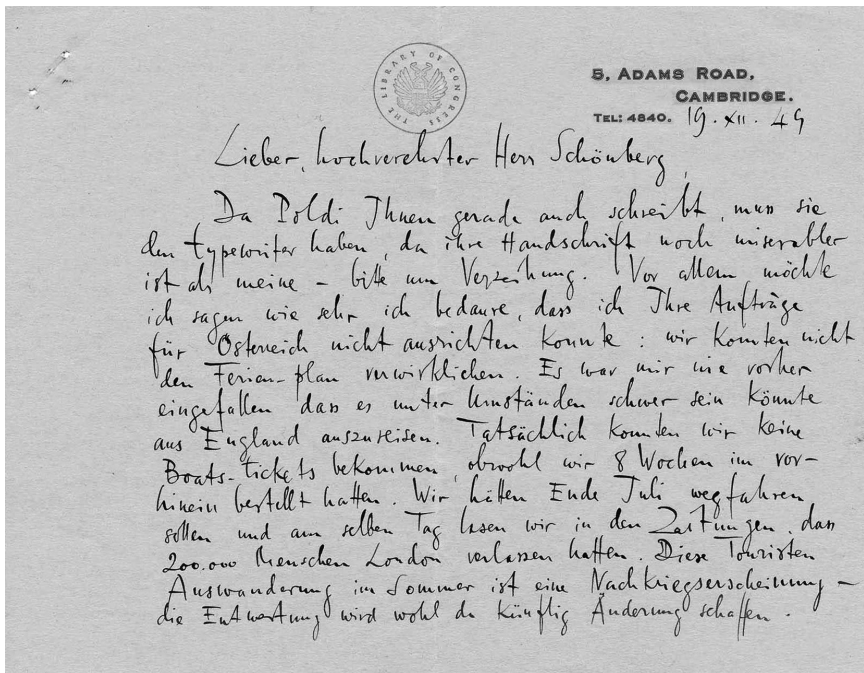 THE LIBRARY OF CONGRESS
5, ADAMS ROAD,
CAMBRIDGE.
TEL: 4840. 19. XII. 49
Lieber, hochverehrter Herr Schönberg,
Da Poldi Ihnen gerade auch schreibt, muss sie
den typewriter haben, da ihre Handschrift noch miserabler
ist als meine – bitte um Verzeihung. Vor allem möchte
ich sagen wie sehr ich bedaure, dass ich Ihre Aufträge
für Österreich nicht ausrichten konnte: wir konnten nicht
den Ferien-plan verwirklichen. Es war mir nie vorher
eingefallen dass es unter Umständen schwer sein könnte
aus England auszureisen. Tatsächlich konnten wir keine
Boats-tickets bekommen, obwohl wir 8 Wochen im vor-
hinein bestellt hatten. Wir hätten Ende Juli wegfahren
sollen und am selben Tag lasen wir in den Zeitungen, dass
200.000 Menschen London verlassen hatten. Diese Touristen
Auswanderung im Sommer ist eine Nachkriegserscheinung –
die Entwertung wird wohl da künftig Änderung schaffen.